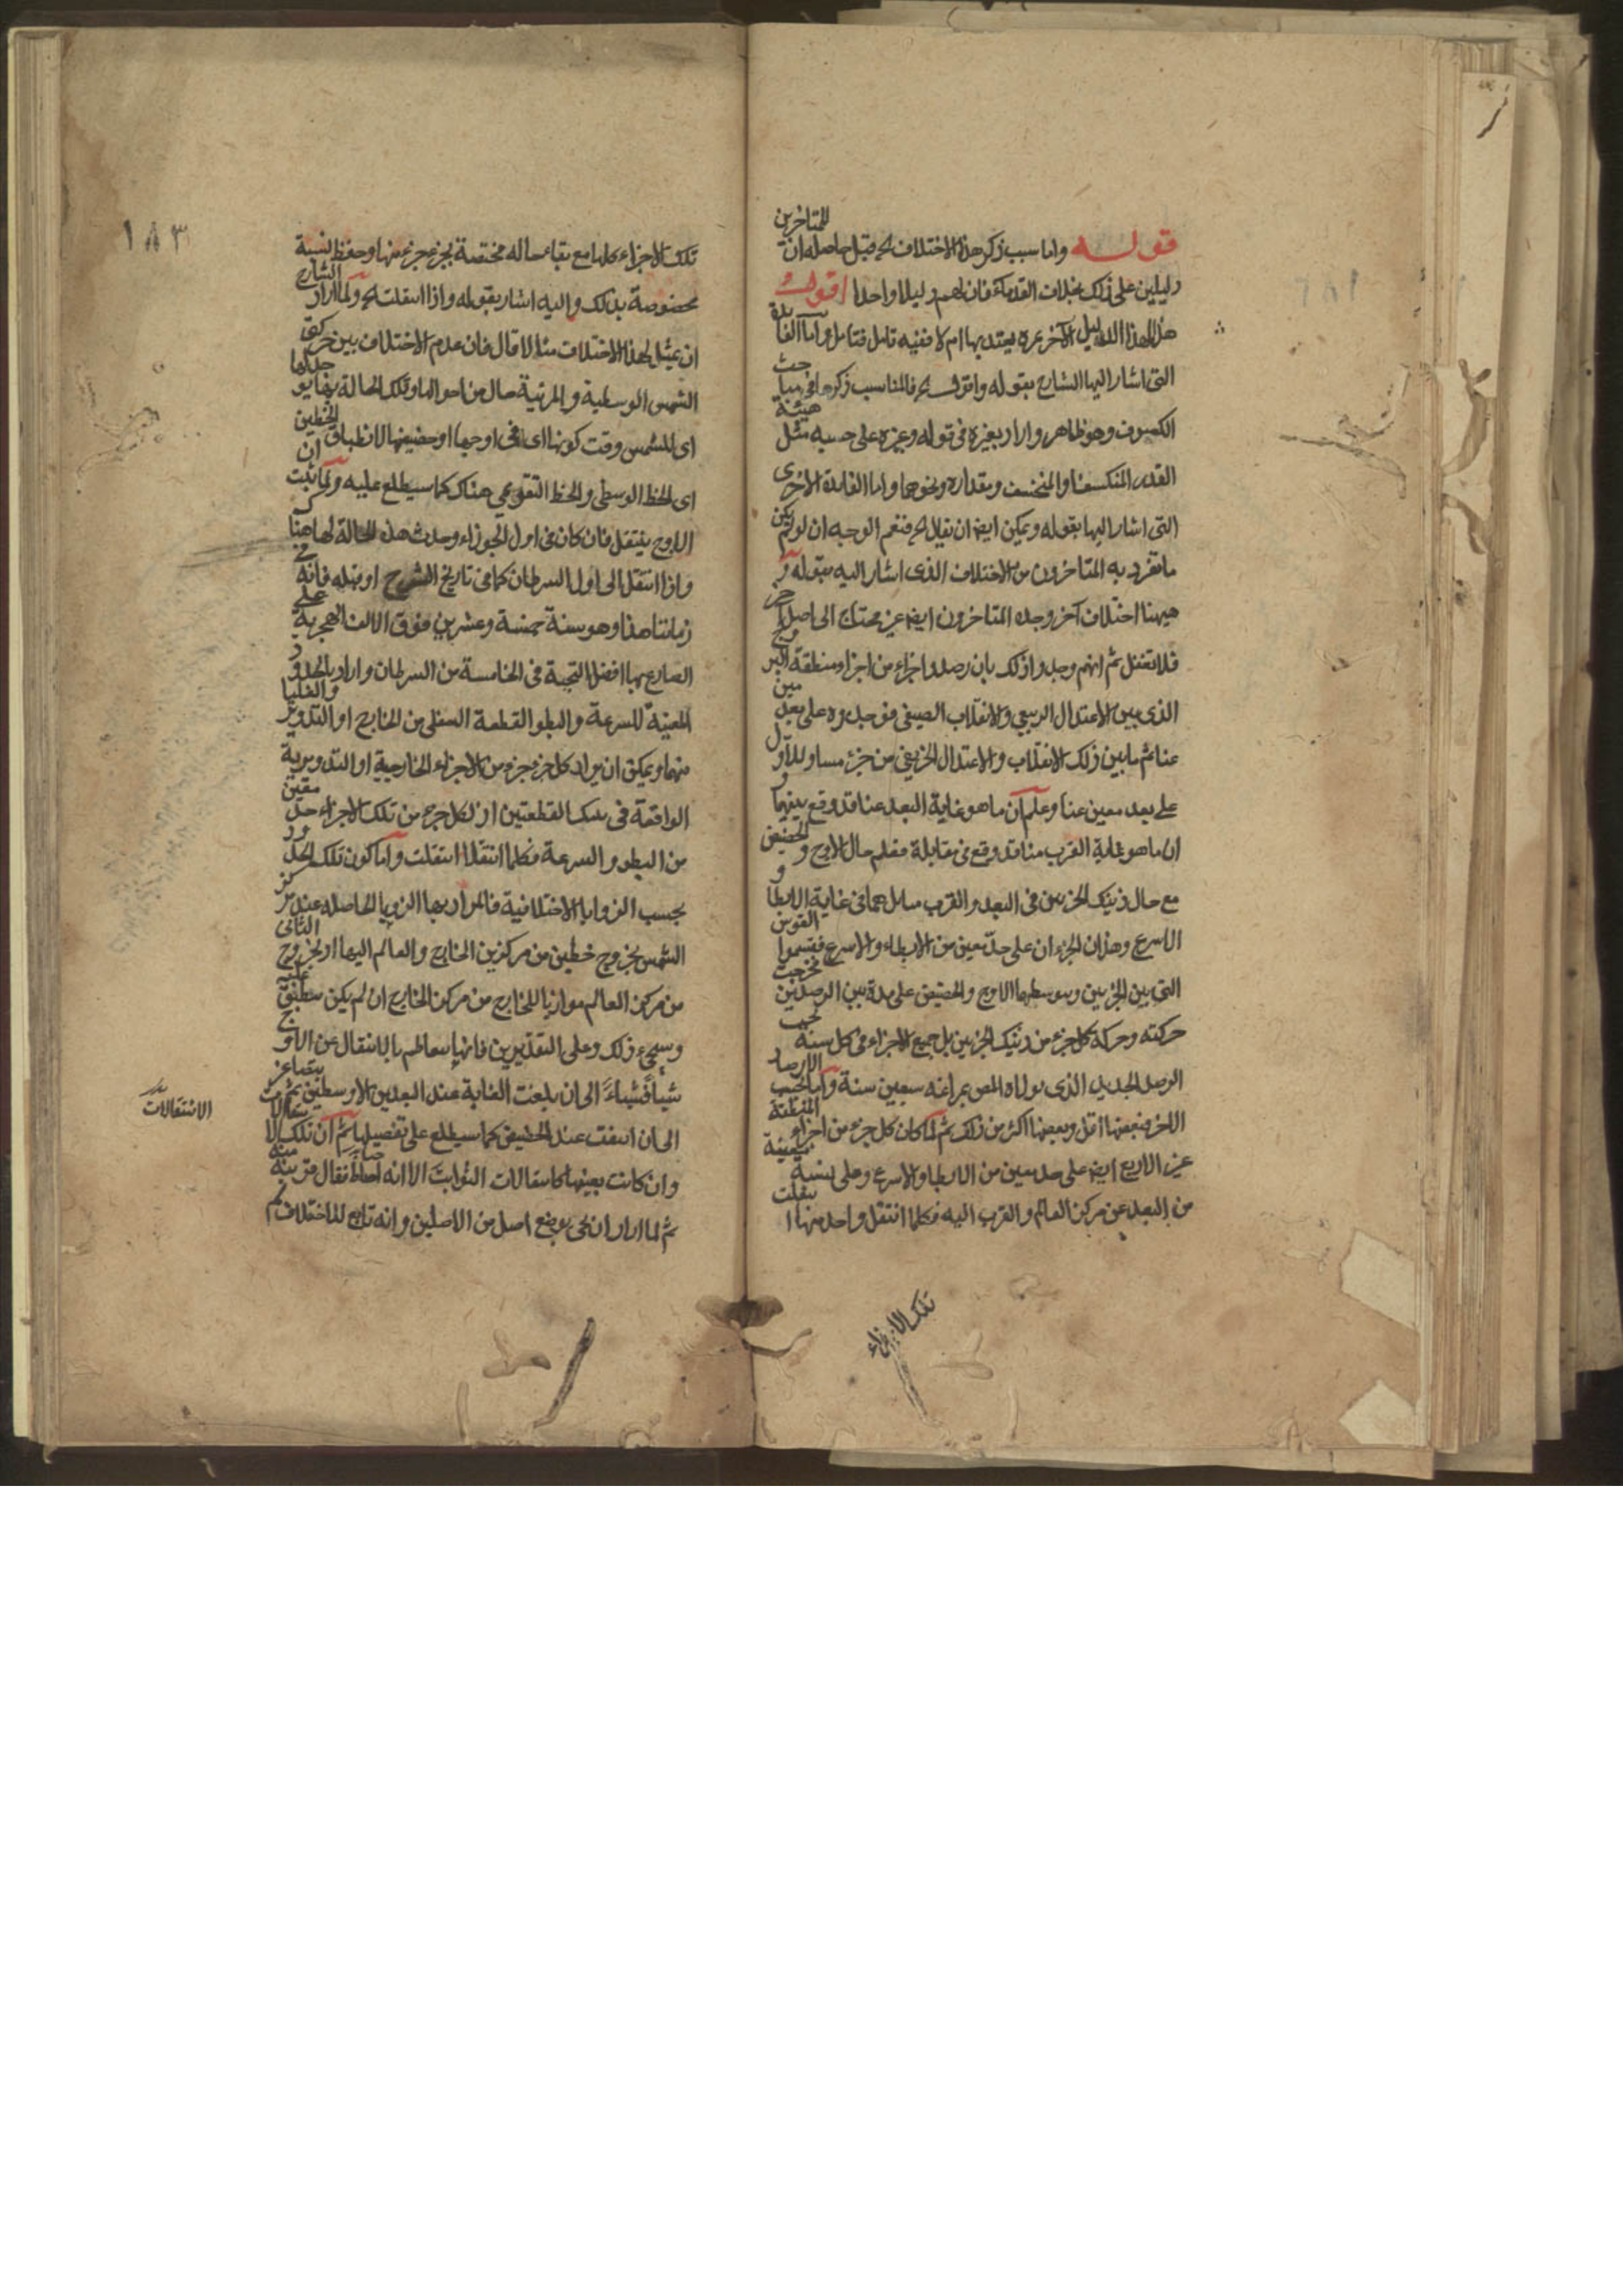 قوله واما سبب ذكر هذا الاختلاف الخ قيل حاصله ان للمتاخرين
دليلين على ذلك بخلاف القدماء فان لهم دليلا واحدا اقول
هل لهذا الدليل الآخر ثمرة يعتد بها ام لا ففيه تامل فتامل واما الفايدة
التى اشار اليها الشارح بقوله واقول الخ فالمناسب ذكرها فى مباحث
الكسوف وهو ظاهر واراد بغيره فى قوله وغيره على حسبه مثل هيئة
القدر المنكسف او المنخسف ومقداره ونحوهما واما الفايدة الاخرى
التى اشار اليها بقوله ويمكن ايضا ان يقال الخ فنعم الوجه ان لو لم يكن
ما تفرد به المتاخرون من الاختلاف الذى اشار اليه بقوله و
ههنا اختلاف آخر وجده المتاخرون ايضا غير محتاج الى اصل آخر
فلا تغفل ثم انهم وجدوا ذلك بان رصدوا اجزاء من اجزاء منطقة البروج
الذى بين الاعتدال الربيعى والانقلاب الصيفى فوجدوه على بعد معين
عنا ثم ما بين ذلك الانقلاب والاعتدال الخريفى من جزء مساو للاول
على بعد معين عنا وعلم ان ما هو غاية البعد عنا قد وقع بينهما و
ان ما هو غاية القرب منا قد وقع فى مقابلة فعلم حال الاوج والحضيض
مع حال ذينك الجزءين فى البعد والقرب بل هما فى غاية الابطا و
الاسرع وهذان الجزءان على حد معين من الابطاء والاسرع فقسموا القوس
التى بين الجزءين وبوسطها الاوج والحضيض على مدة بين الرصدين فخرجت
حركته وحركة كل جزء من ذينك الجزءين بل جميع الاجزاء فى كل سنة بحسب
الرصد الجديد الذى تولاه المص بمراغه سبعين سنة واما بحسب الارصاد
الاخر فبعضها اقل وبعضها اكثر من ذلك ثم لما كان كل جزء من اجزاء المنطقة
غير الاربع ايضا على حد معين من الابطا والاسرع وعلى نسبة معينة
من البعد عن مركز العالم والقرب اليه فكلما انتقل واحد منها انتقلت
تلك الاجزاء
١٨٣
تلك الاجزاء كلها مع بقاء حاله مختصة بجزء جزء منها وحفظ نسبة
مخصوصة بذلك واليه اشار بقوله واذا انتقلت الخ ولما اراد الشارح
ان يمثل لهذا الاختلاف مثالا قال فان عدم الاختلاف بين حركتى
الشمس الوسطية والمرئية حال من احوالها وتلك الحالة
اى للشمس وقت كونها اى فى اوجها او حضيضها لانطباق الخطين
اى الخط الوسطى والخط التقويمى هناك كما سيطلع عليه ولما ثبت ان
الاوج ينتقل فان كان فى اول الجوزاء وحدث هذه الحالة لها هنا
واذا انتقل الى اول السرطان كما فى تاريخ الشرح او قبله فانه فى
زماننا هذا وهو سنة خمسة وعشرين فوق الالف الهجرية على
الصادع بها افضل التحية فى الخامسة من السرطان واراد بالحدود
المعينة للسرعة والبطو القطعة السفلى من الخارج او التدوير والعليا
منهما ويمكن ان يراد كل جزء جزء من الاجزاء الخارجية او التدويرية
الواقعة فى تلك القطعتين اذ لكل جزء من تلك الاجزاء حد معين
من البطو والسرعة فكلما انتقلا انتقلت واما كون تلك الحدود
بحسب الزوايا الاختلافية فالمراد بها الزوايا الحاصله عند مركز
الشمس بخروج خطين من مركزين الخارج والعالم اليها او بخروج الثانى
من مركز العالم موازيا للخارج من مركز الخارج ان لم يكن منطبق عليه
وسيجىء ذلك وعلى التقديرين فانها تتعاظم بالانتقال عن الاوج
شيئا فشياء الى ان بلغت الغاية عند البعدين الاوسطين ثم يتصاغر
الى ان انتفت عند الحضيض كما سيطلع على تفصيلها ثم ان تلك الانتقالات
وان كانت بعينها كانتقالات الثوابت الا انه
ثم لما اراد ان يحى بوضع اصل من الاصلين وانه تابع للاختلاف
الانتقالات